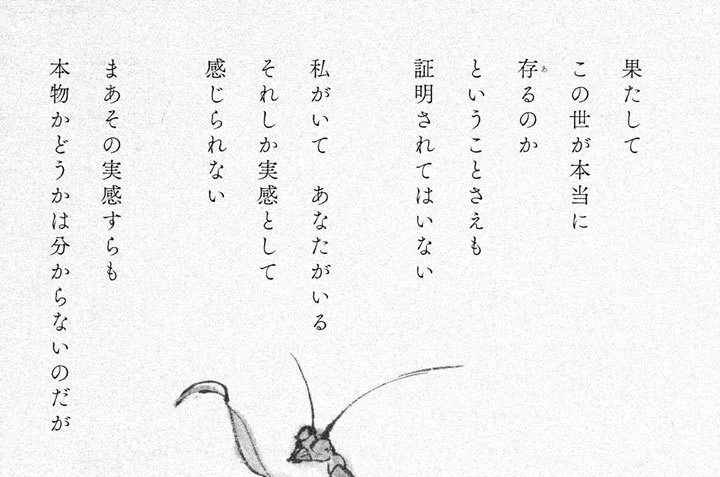 果たして
この世が本当に
存るのか
ということさえも
証明されてはいない
私がいて　あなたがいる
それしか実感として
感じられない
まあその実感すらも
本物かどうかは分からないのだが